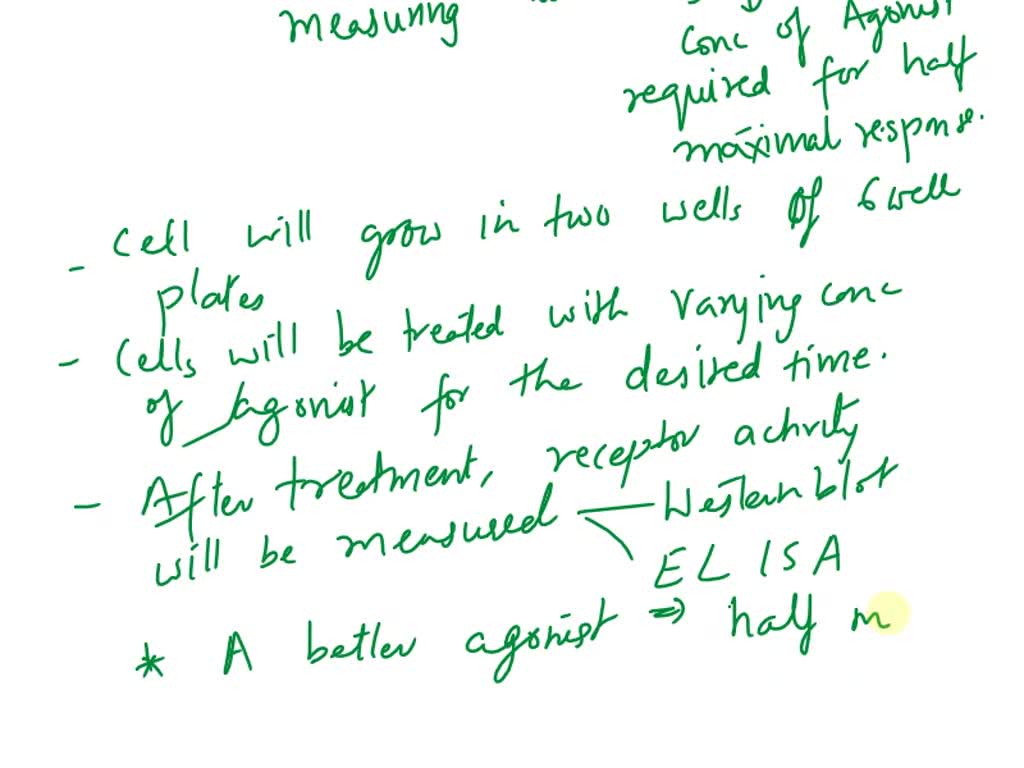 measuring
conc of Agonist
required for half
maximal response.
- Cell will grow in two wells of 6 well
plates
- Cells will be treated with varying conc
of agonist for the desired time.
- After treatment, receptor activity
will be measured Western blot
ELISA
* A better agonist ⇒ half m